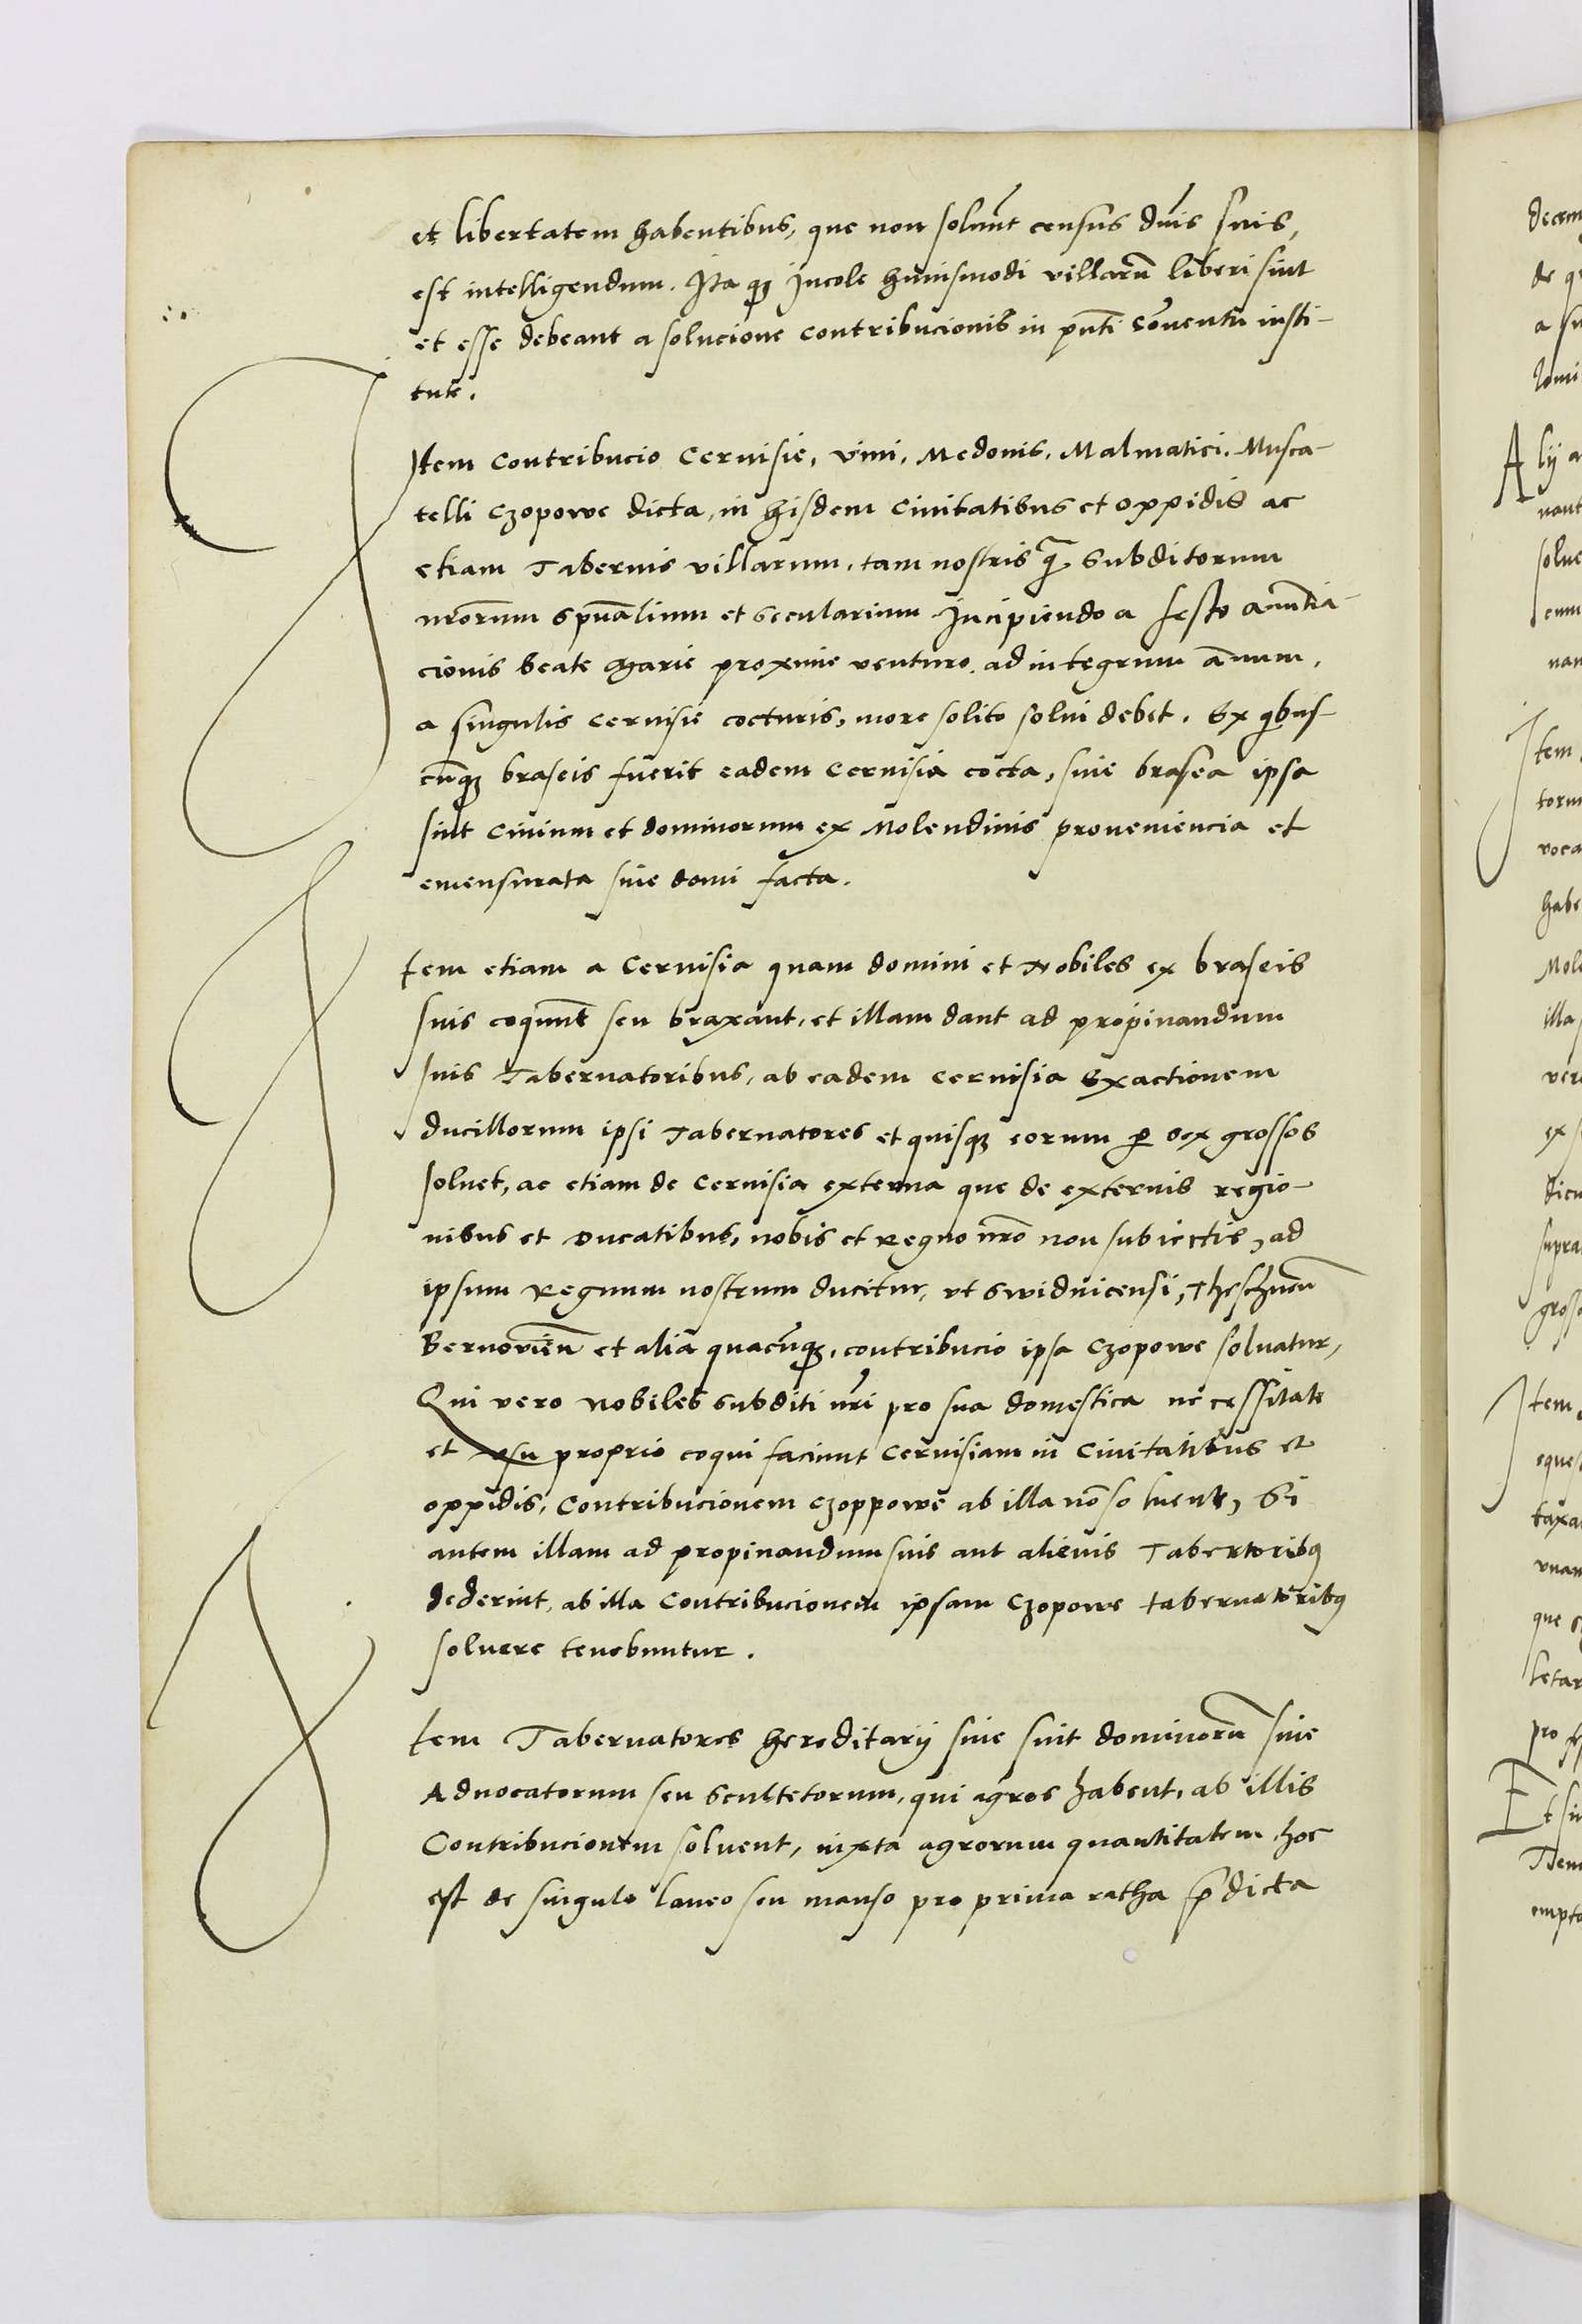 et libertatem habentibus, que non solunt census dnis suis,
est intelligendum. Ita q; Incole huiusmodi villarū liberi sint
et esse debeant a solucione contribucionis in pnti cōventu insti-
tute.
Item Contribucio Cervisie, vini, Medonis, Malmatici, Musca-
telli Czopowe dicta, in hisdem Civitatibus et oppidis ac
etiam Tabernis villarum, tam nostris q̄ Subditorum
nrōrum spūalium et secularium Incipiendo a festo anūntia-
cionis beate Marie proxime venturo, ad integrum annum,
a singulis cervisie cocturis, more solito solvi debet. Ex qbus-
cūq; braseis fuerit eadem Cervisia cocta, sive brasea ipsa
sint Civium et dominorum ex Molendinis proveniencia et
emensurata sive domi facta.
Item etiam a Cervisia quam domini et Nobiles ex braseis
suis coqunt seu braxant, et illam dant ad propinandum
suis Tabernatoribus, ab eadem cervisia Exactionem
ducillorum ipsi Tabernatores et quisq; eorum p sex grossos
solvet, ac etiam de Cervisia externa que de externis regio-
nibus et Ducatibus, nobis et Regno nrō non subiectis, ad
ipsum Regnum nostrum ducitur, vt Swidnicensi, Theschnen̄
Bernovien̄ et alia quacūq;, contribucio ipsa Czopowe solvatur,
Qui vero Nobiles subditi nri pro sua domestica necessitate
et usu proprio coqui faciunt Cervisiam in Civitatibus et
oppidis, Contribucionem Czoppowe ab illa nō solvent, Si
autem illam ad propinandum suis aut alienis Tabertoribq
dederint, ab illa Contribucionem ipsam Czopowe tabernatoribq
solvere tenebuntur.
Item Tabernatores hereditarij sive sint dominorū sive
Advocatorum seu Scultetorum, qui agros habent, ab illis
Contribucionem solvent, iuxta agrorum quantitatem, hoc
est de singulo laneo seu manso pro prima ratha p̄dicta